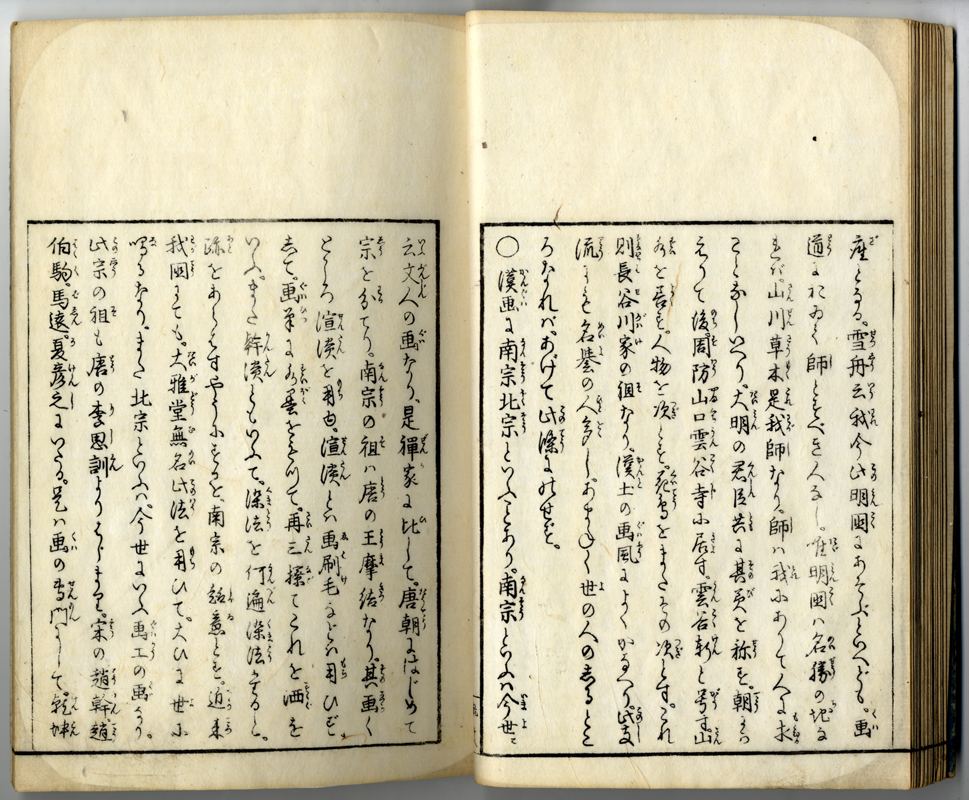 座とる。雪舟云我今此明国にあそぶといへども。画
道におゐて師とすべき人なし。唯明国は名勝の地な
れバ。山川草木是我師なり。師は我にありて人に求
ことなしといへり。大明の君臣共に其英を称す。帰朝
して後周防山口雲谷寺に居す。雲谷軒と号す。山
水を善す。人物を次とす。花鳥をまたその次とす。これ
則長谷川家の祖なり。漢土の画風によくかなへり。此支
流にも名誉の人多し。あまねく世の人のしるとこ
ろなれバ。あげて此条にのせず。
○漢画に南宗北宗といふことあり。南宗といふは今世に
云文人の画なり。是禅家に比して。唐朝にはじめて
宗を分てり。南宗の祖ハ唐の王摩詰なり。其画く
ところ渲淡を用ゆ。渲淡とは画刷毛などは用ひず
して。画筆に水墨をそへて。再三擦てこれを洒を
いふ。また幹淡ともいふて。染法を何遍染法すると。
跡をあらはさずやうにするを。南宗の妙意とす。近来
我国にても。大雅堂無名此法を用ひて。大ひに世に
鳴るなり。また北宗といふハ。今世にいふ画工の画なり。
此宗の祖も唐の李思訓よりはじまる。宋の趙幹趙
伯駒。馬遠。夏彦之にいたる。是は画の専門にして。乾坤